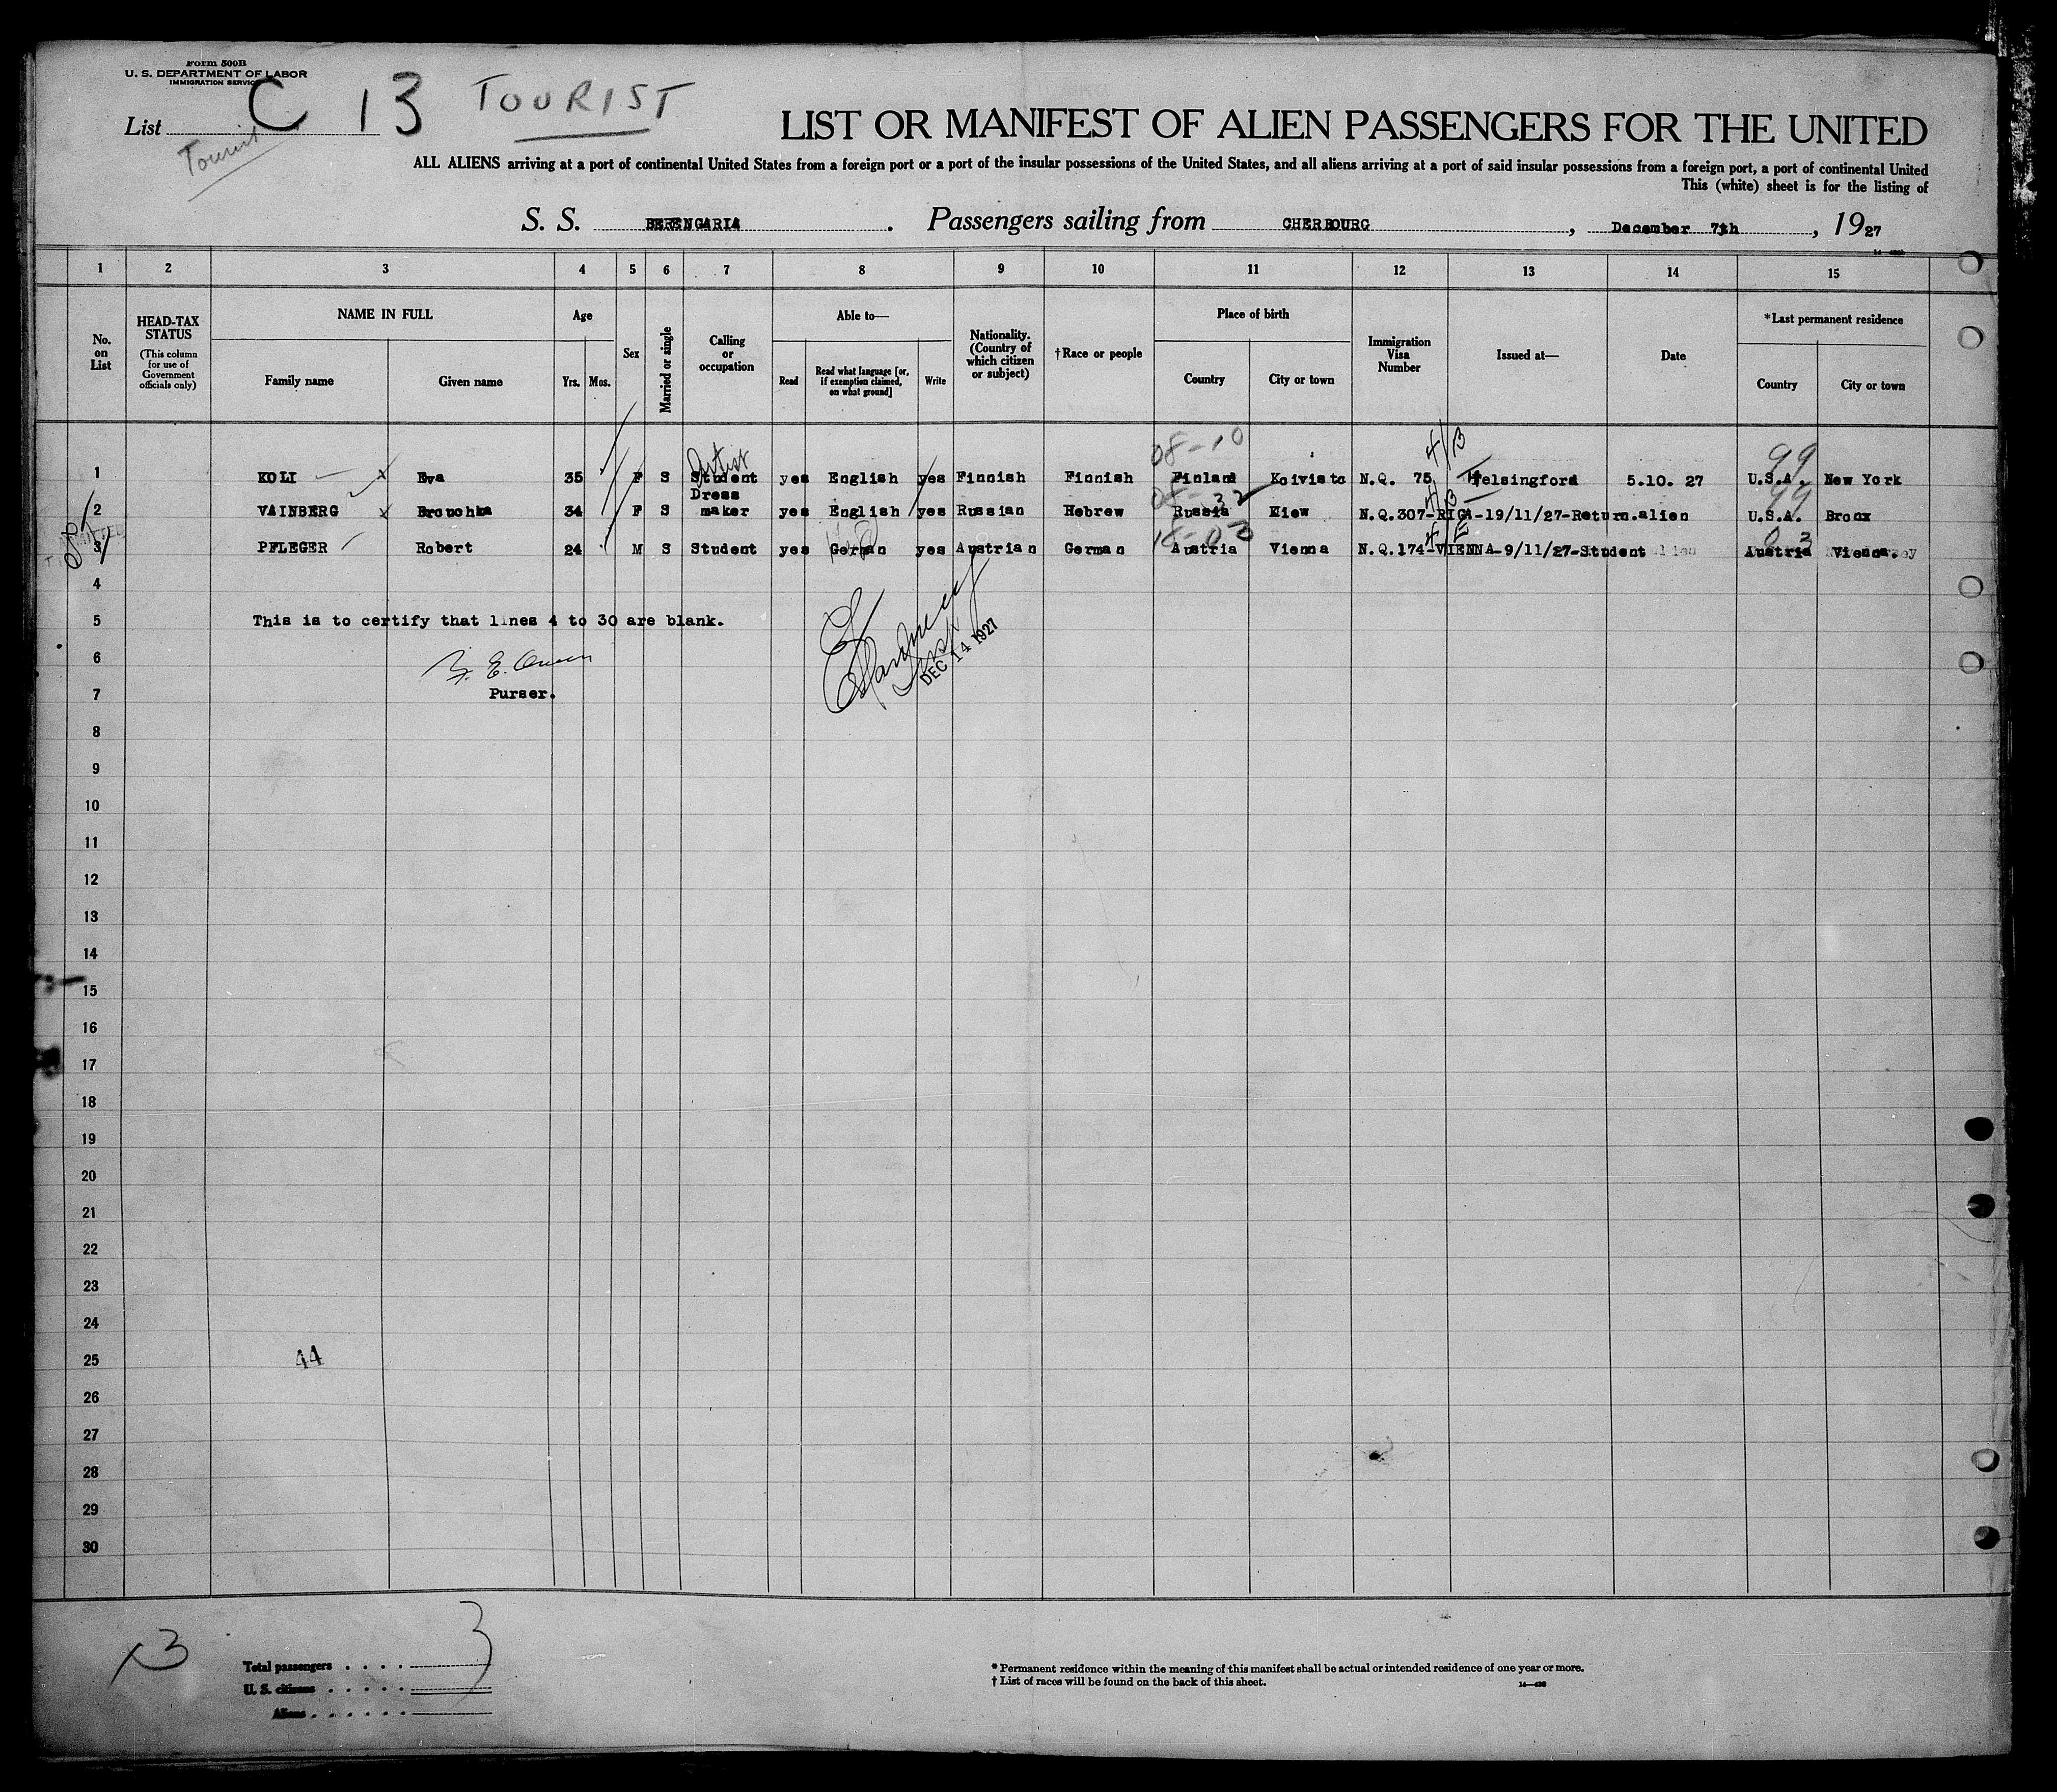 Form 500B
U. S. DEPARTMENT OF LABOR
IMMIGRATION SERVICE
List C 13 TOURIST
Tourist
LIST OR MANIFEST OF ALIEN PASSENGERS FOR THE UNITED
ALL ALIENS arriving at a port of continental United States from a foreign port or a port of the insular possessions of the United States, and all aliens arriving at a port of said insular possessions from a foreign port, a port of continental United
This (white) sheet is for the listing of
S. S. BERENGARIA. Passengers sailing from CHERBOURG, December 7th, 1927
1 2 3 4 5 6 7 8 9 10 11 12 13 14 15
No. on List
HEAD-TAX STATUS
(This column for use of Government officials only)
NAME IN FULL
Family name Given name
Age
Yrs. Mos.
Sex
Married or single
Calling or occupation
Able to—
Read
Read what language [or, if exemption claimed, on what ground]
Write
Nationality. (Country of which citizen or subject)
†Race or people
Place of birth
Country City or town
Immigration Visa Number
Issued at—
Date
*Last permanent residence
Country City or town
08-10 4/13 99
Artist
1 KOLI x Eva 35 F S Student yes English yes Finnish Finnish Finland Koivisto N.Q. 75 Helsingford 5.10. 27 U.S.A. New York
99
2 VAINBERG x Brouchka 34 F S Dress maker yes English yes Russian Hebrew Russia Kiew N.Q.307-RIGA-19/11/27-Return.alien U.S.A. Bronx
18-03 03
3 PFLEGER Robert 24 M S Student yes German yes Austrian German Austria Vienna N.Q.174-VIENNA-9/11/27-Student Austria Vienna.
4
5 This is to certify that lines 4 to 30 are blank.
6
7 Purser.
DEC 14 1927
8
9
10
11
12
13
14
15
16
17
18
19
20
21
22
23
24
25 44
26
27
28
29
30
13
Total passengers . . . . 3
U. S. citizens . . . . .
Aliens . . . . . .
* Permanent residence within the meaning of this manifest shall be actual or intended residence of one year or more.
† List of races will be found on the back of this sheet.